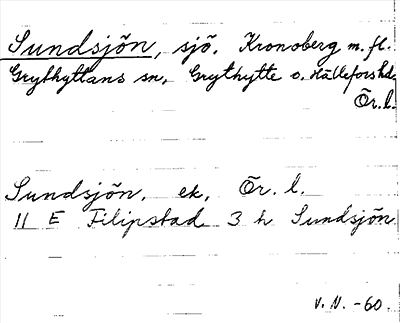 Sundsjön, sjö. Kronoberg m. fl.
Grythyttans sn, Grythytte o. Hällefors hd.
Ör. l.
Sundsjön. ek, Ör. l.
11 E Filipstad 3 h Sundsjön
V. N. -60.